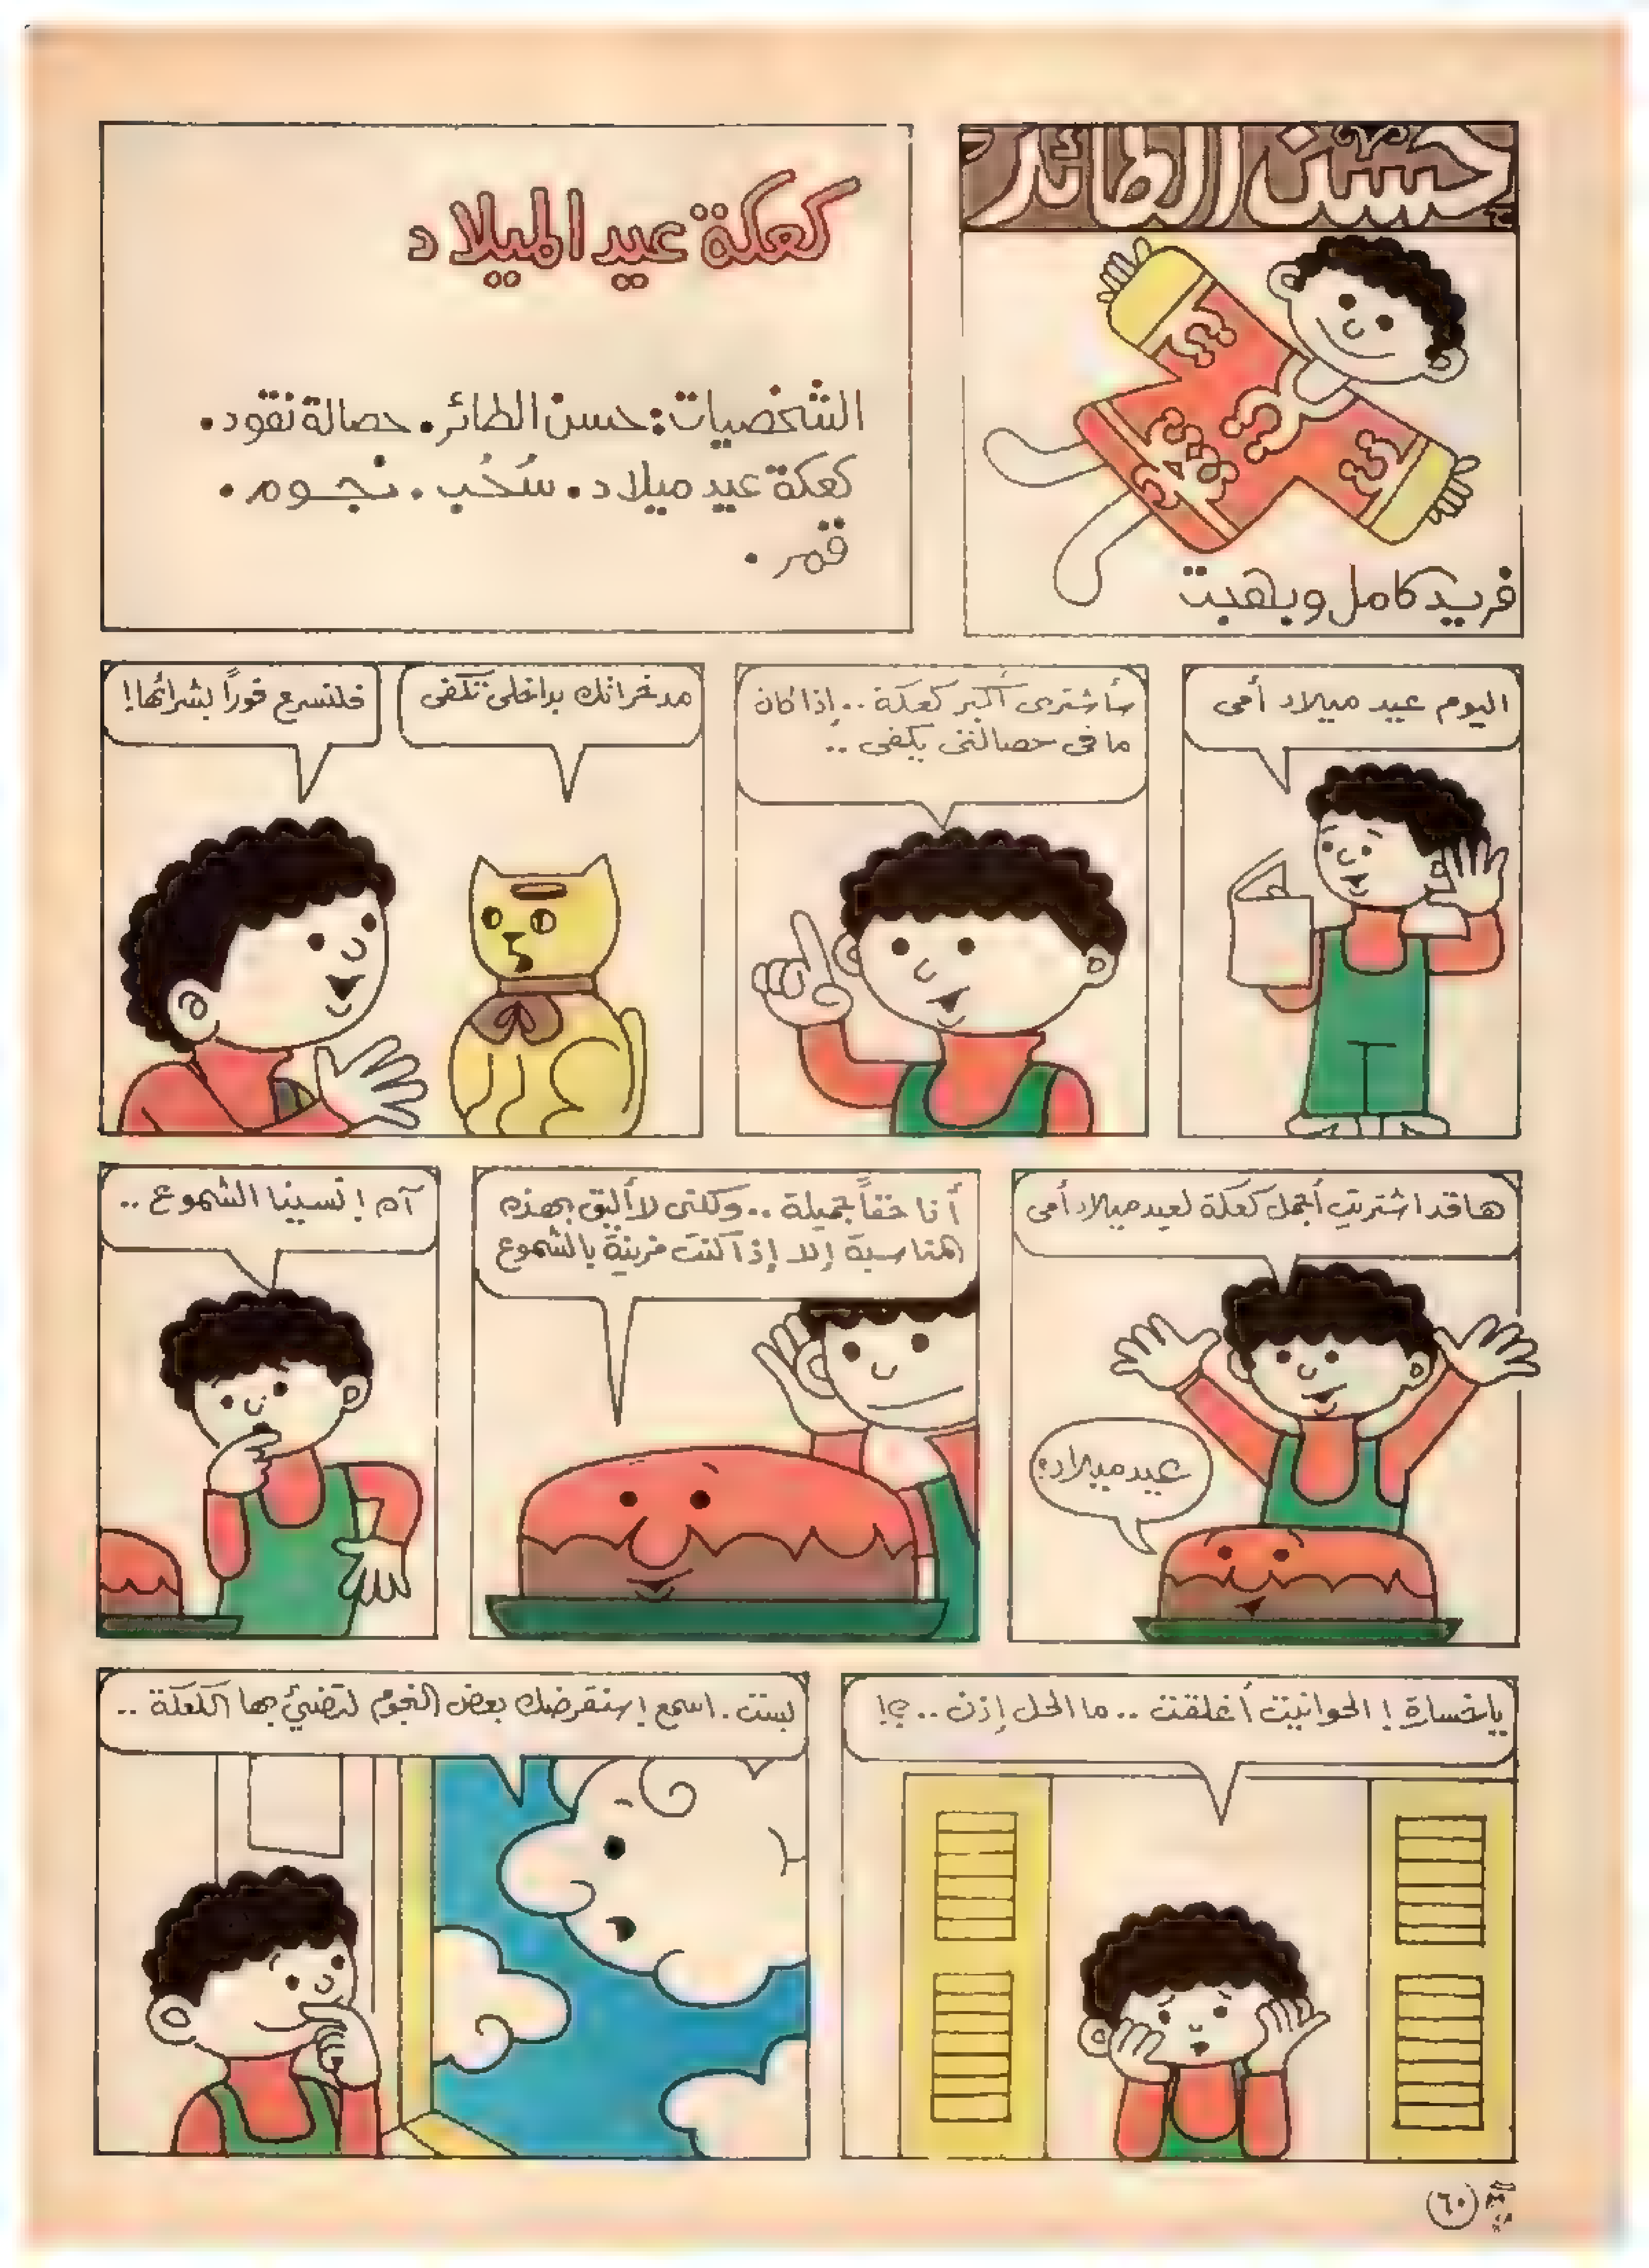 حسن الطائر
فريد كامل وبهجت
كعكة عيد الميلاد
الشخصيات: حسن الطائر. حصالة نقود.
كعكة عيد ميلاد. سُحُب. نجوم.
قمر.
اليوم عيد ميلاد أمى
سأشترى أكبر كعكة .. إذا كان
ما فى حصالتى يكفى ..
مدخراتك بداخلى تكفى
فلنسرع فوراً بشرائها!
ها قد اشتريت أجمل كعكة لعيد ميلاد أمى
عيد ميلاد؟
أنا حقاً جميلة .. ولكنى لا أليق بهذه
المناسبة إلا إذا كنت مزينة بالشموع
آه! نسينا الشموع ..
يا خسارة! الحوانيت أغلقت .. ما الحل إذن .. ؟!
بست. اسمع! سنقرضك بعض النجوم لتضئ بها الكعكة ..
٦٠